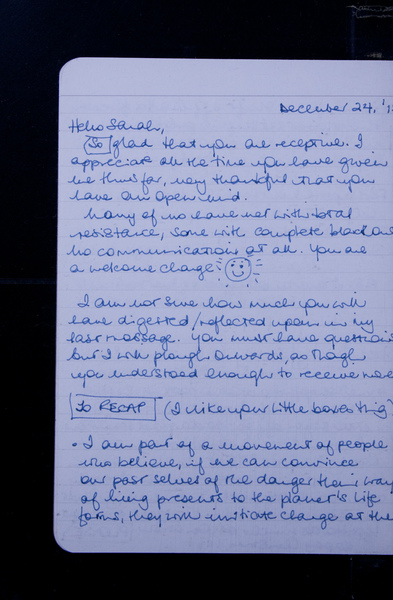 December 24, '1
Hello Sarah,
So glad that you are receptive. I
appreciate all the time you have given
me thus far, very thankful that you
have an open mind.
Many of us have met with total
resistance, some with complete black ou
no communication at all. You are
a welcome change
I am not sure how much you will
have digested/reflected upon in my
last message. You must have question
but I will plough onwards, as though
you understood enough to receive more
TO RECAP (I like your little boxes thing)
• I am part of a movement of people
who believe, if we can convince
our past selves of the danger their way
of living presents to the planet's life
forms, they will initiate change at the